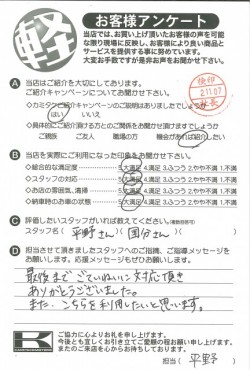 軽
お客様アンケート
当店では、お買い上げ頂いたお客様の声を可能
な限り現場に反映し、お客様により良い商品と
サービスを提供する事に努めています。
大変お手数ですが是非お声をお聞かせ下さい。
A 当店はご紹介を大切にしております。
ご紹介キャンペーンについてお聞かせ下さい。
◇カミタクご紹介キャンペーンのご説明はありましたでしょうか
はい いいえ
◇具体的にご紹介頂ける方とのご関係をお聞かせ頂けますでしょうか
ご親族 ご友人 職場の方 機会があれば紹介したい
B 当店を実際にご利用になった印象をお聞かせ下さい。
◇総合的な満足度 5.大満足 4.満足 3.ふつう 2.やや不満 1.不満
◇スタッフの対応 5.大満足 4.満足 3.ふつう 2.やや不満 1.不満
◇お店の雰囲気、清掃 5.大満足 4.満足 3.ふつう 2.やや不満 1.不満
◇納車時のお車の状態 5.大満足 4.満足 3.ふつう 2.やや不満 1.不満
C 評価したいスタッフがいれば教えてください。(複数回答可)
スタッフ名( 平野さん )( 国分さん )
D 担当させて頂きましたスタッフへのご指摘、ご指導メッセージを
お願いします。応援メッセージもぜひお願いします。
最後までごていねいに対応頂き
ありがとうございました。
また、こちらを利用したいと思います。
K
ご協力に心よりお礼を申し上げます。
今後とも宜しくお引き立てご愛顧の程お願い申し上げます。
またのご来店を心からお待ちしております。
担当( 平野 )